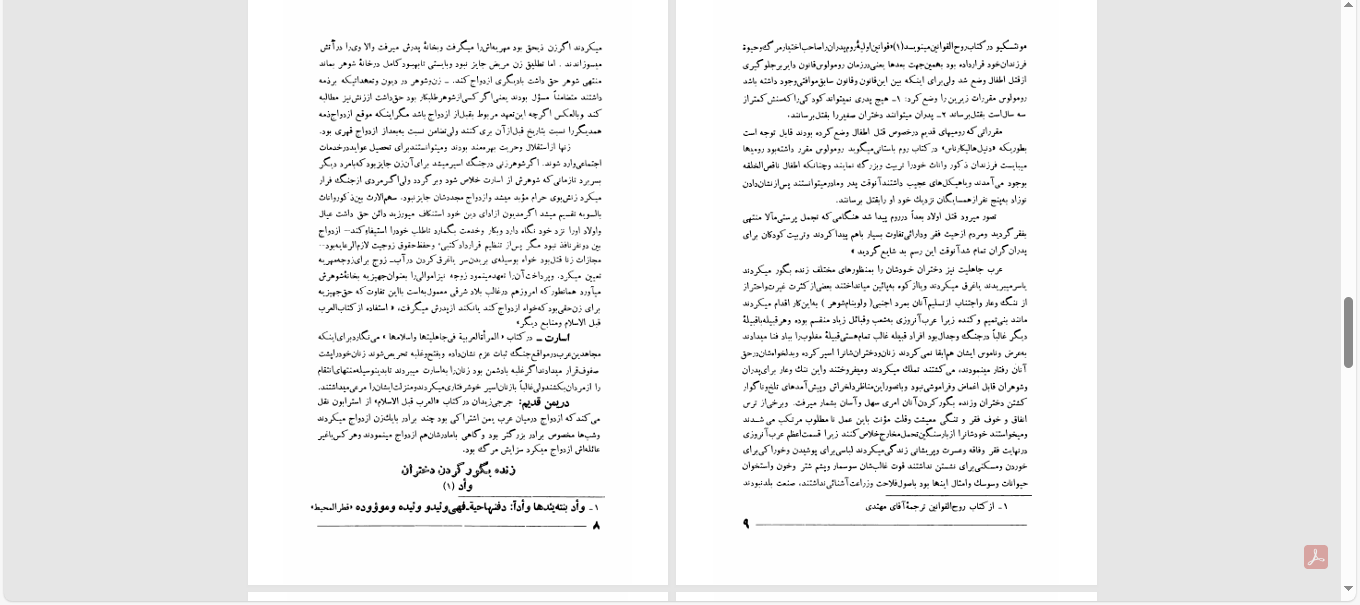 میکردند اگر زن ذیحق بود مهریه‌اش را میگرفت وبخانهٔ پدرش میرفت والا وی را درآتش
میسوزاندند . اما تطلیق زن مریض جایز نبود وبایستی تابهبود کامل درخانهٔ شوهر بماند
منتهی شوهر حق داشت بادیگری ازدواج کند. ـ زن‌وشوهر در دیون وتعهداتیکه برذمه
داشتند متضامناً مسؤل بودند یعنی اگر کسی از شوهر طلبکار بود حق داشت اززنش نیز مطالبه
کند وبالعکس اگرچه این‌تعهد مربوط بقبل‌از ازدواج باشد مگر اینکه موقع ازدواج ذمه
همدیگر را نسبت بتاریخ قبل از آن بری کنند ولی تضامن نسبت به‌بعداز ازدواج قهری بود.
زنها ازاستقلال وحریت بهره‌مند بودند ومیتوانستند برای تحصیل عواید درخدمات
اجتماعی وارد شوند. اگر شوهر زنی درجنگ اسیر میشد برای آن زن جایز بود که بامرد دیگر
بسر برد تازمانی که شوهرش از اسارت خلاص شود وبر گردد ولی اگر مردی ازجنگ فرار
میکرد زنش بوی حرام مؤبد میشد وازدواج مجددشان جایز نبود. سهم‌الارث بین ذکور واناث
بالسویه تقسیم میشد اگر مدیون ازادای دین خود استنکاف میورزید دائن حق داشت عیال
واولاد اورا نزد خود نگاه دارد وبکار وخدمت بگمارد تاطلب خودرا استیفاء کند ـ ازدواج
بین دونفر نافذ نبود مگر پس از تنظیم قرارداد کتبی. وحفظ حقوق زوجیت لازم‌الرعایه بود ـ
مجازات زنا قتل بود خواه بوسیله‌ی بریدن سر یاغرق کردن در آب ـ زوج برای زوجه مهریه
تعیین میکرد. وپرداخت آن را تعهد مینمود زوجه نیز اموالی را بعنوان جهیزیه بخانهٔ شوهرش
میآورد همانطور که امروز هم درغالب بلاد شرقی معمول به است بااین تفاوت که حق جهیزیه
برای زن حقی بود که خواه ازدواج کند یانکند ازپدرش میگرفت، « استفاده از کتاب العرب
قبل الاسلام ومنابع دیگر»
اسارت ـ در کتاب « المرأة العربیة فی جاهلیتها واسلامها » می‌نگارد برای اینکه
مجاهدین عرب در مواقع جنگ ثبات عزم نشان داده وبفتح وغلبه تحریص شوند زنان خودرا پشت
صفوف قرار میدادند اگر غلبه بادشمن بود زنان را به‌اسارت میبردند تابدینوسیله منتهای انتقام
را از مردان بکشند ولی غالباً بازنان اسیر خوشرفتاری میکردند ومنزلت ایشان را مرعی میداشتند.
دریمن قدیم: جرجی‌زیدان در کتاب «العرب قبل الاسلام» از استرابون نقل
می کند که ازدواج درمیان عرب یمن اشتراکی بود چند برادر بایک زن ازدواج میکردند
وشب‌ها مخصوص برادر بزرگتر بود وگاهی بامادرشان هم ازدواج مینمودند وهر کس باغیر
عائله‌اش ازدواج میکرد سزایش مرگ بود.
زنده بگور کردن دختران
وأد (۱)
۱ـ وأد بنته یئدها وأداً: دفنها حیة فهی وئید و وئیده وموؤوده «قطر المحیط»
۸
مونتسکیو در کتاب روح القوانین مینویسد (۱) «قوانین اولیهٔ روم پدران را صاحب اختیار مرگ وحیوة
فرزندان خود قرارداده بود بهمین‌جهت بعدها یعنی درزمان رومولوس قانون دایر برجلوگیری
ازقتل اطفال وضع شد ولی برای اینکه بین این قانون وقانون سابق موافقتی وجود داشته باشد
رومولوس مقررات زیرین را وضع کرد: ۱ـ هیچ پدری نمیتواند کودکی را که سنش کمتر از
سه سال است بقتل برساند ۲ـ پدران میتوانند دختران صغیر را بقتل برسانند.
مقرراتی که رومیهای قدیم درخصوص قتل اطفال وضع کرده بودند قابل توجه است
بطوریکه «دنیل هالیکارناس» در کتاب روم باستانی میگوید رومولوس مقرر داشته بود رومیها
میبایست فرزندان ذکور واناث خودرا تربیت وبزرگ نمایند وچنانکه اطفال ناقص الخلقه
بوجود می آمدند وباهیکل‌های عجیب داشتند آنوقت پدر ومادر میتوانستند پس از نشان دادن
نوزاد به پنج نفر از همسایگان نزدیک خود او رابقتل برسانند.
تصور میرود قتل اولاد بعداً درروم پیدا شد هنگامی که تجمل پرستی مآلا منتهی
بفقر گردید ومردم ازحیث فقر ودارائی تفاوت بسیار باهم پیدا کردند وتربیت کودکان برای
پدران گران تمام شد آنوقت این رسم بد شایع گردید »
عرب جاهلیت نیز دختران خودشان را بمنظورهای مختلف زنده بگور میکردند
یاسر میبریدند یاغرق میکردند ویااز کوه به‌پائین میانداختند بعضی از کثرت غیرت واحتراز
از ننگ وعار واجتناب ازتسلیم آنان بمرد اجنبی( ولوبنام شوهر ) به‌این کار اقدام میکردند
مانند بنی تمیم و کنده زیرا عرب آنروزی به‌شعب وقبائل زیاد منقسم بوده وهر قبیله باقبیلهٔ
دیگر غالباً درجنگ وجدال بود افراد قبیله غالب تمام هستی قبیلهٔ مغلوب را بباد فنا میدادند
به‌عرض وناموس ایشان هم ابقا نمی کردند زنان ودختران شانرا اسیر کرده وبدلخواه‌شان درحق
آنان رفتار مینمودند، می کشتند تملک میکردند ومیفروختند واین ننگ وعار برای پدران
وشوهران قابل اغماض وفراموشی نبود وباتصور این مناظر دلخراش وپیش آمدهای تلخ وناگوار
کشتن دختران وزنده بگور کردن آنان امری سهل وآسان بشمار میرفت. وبرخی از ترس
انفاق و خوف فقر و تنگی معیشت وقلت مؤنت باین عمل نا مطلوب مرتکب می شدند
ومیخواستند خودشانرا از بار سنگین تحمل مخارج خلاص کنند زیرا قسمت اعظم عرب آنروزی
درنهایت فقر وفاقه وعسرت وپریشانی زندگی میکردند لباسی برای پوشیدن وخوراکی برای
خوردن ومسکنی برای نشستن نداشتند قوت غالب‌شان سوسمار وپشم شتر وخون واستخوان
حیوانات وسوسک وامثال اینها بود باصول فلاحت وزراعت آشنائی نداشتند، صنعت بلد نبودند
۱ـ از کتاب روح‌القوانین ترجمهٔ آقای مهتدی
۹